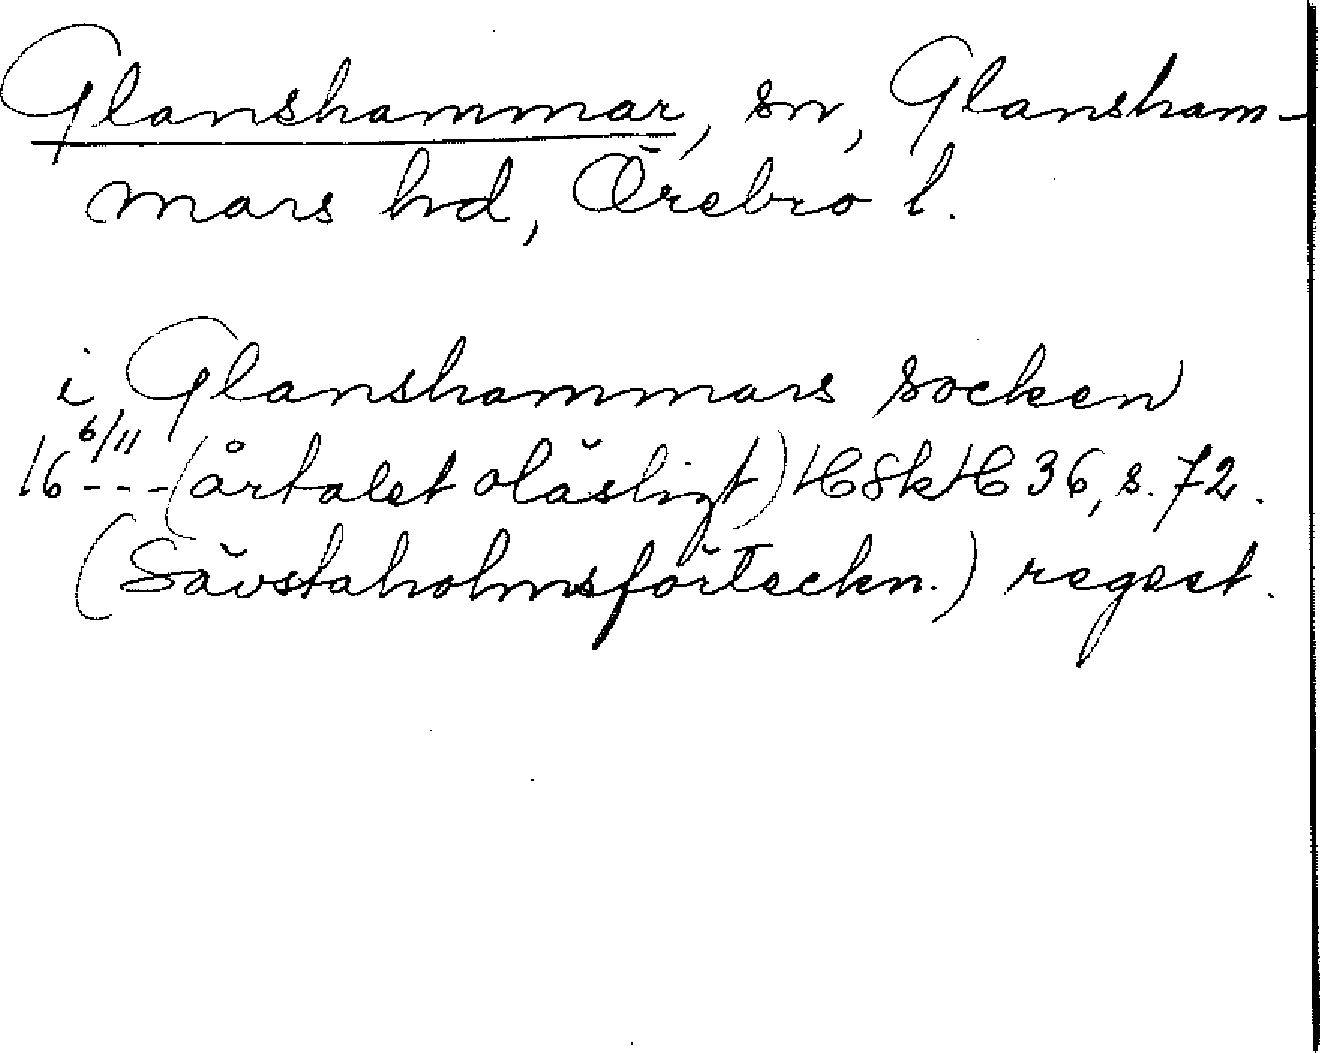 Glanshammar, sn, Glansham-
mars hd, Örebro l.
i Glanshammars socken
16--- 6/11 (årtalet oläsligt) HSkH 36, s. 72.
(Sävstaholmsförteckn.) regest.